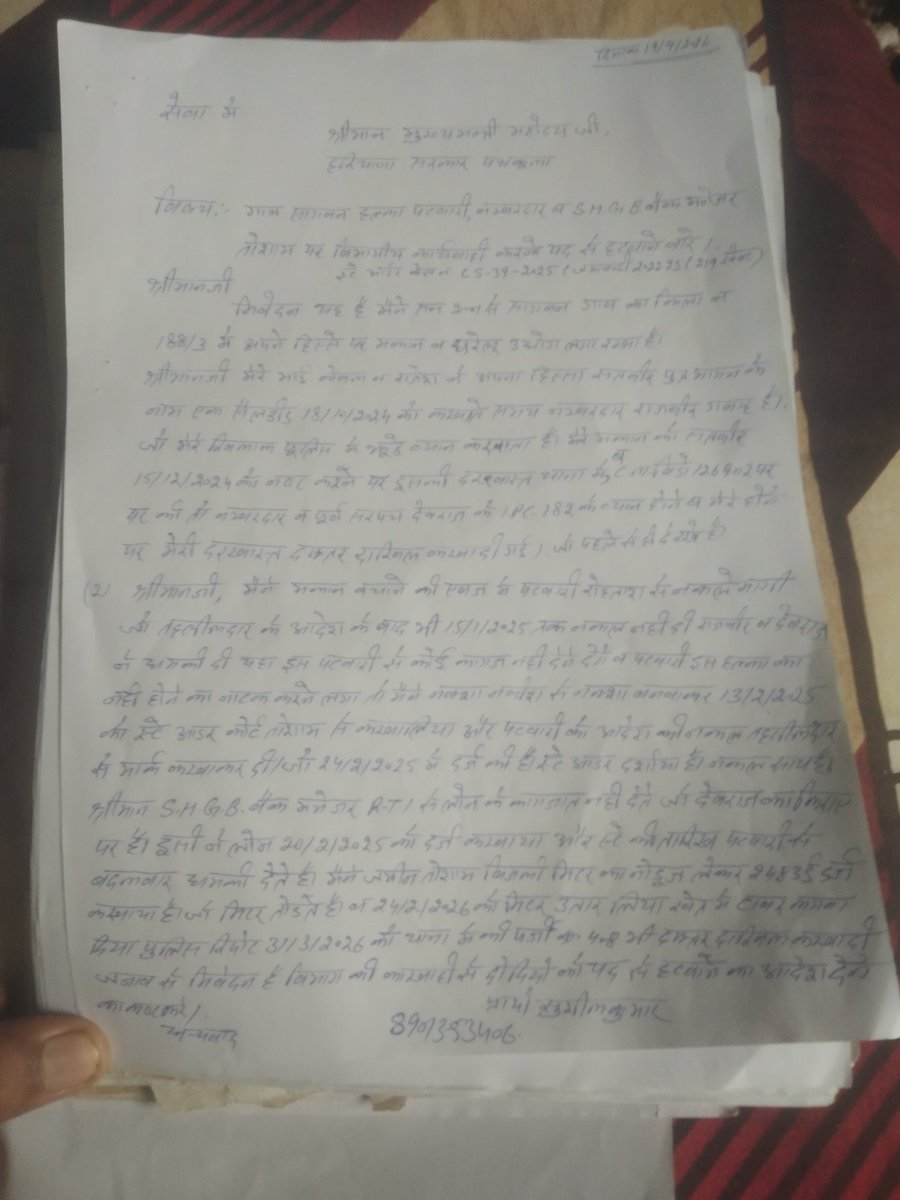 दिनांक 19/4/2026
सेवा में
श्रीमान मुख्यमन्त्री महोदय जी,
हरियाणा सरकार पंचकुला
विषय:- गांव सागवन हल्का पटवारी, नम्बरदार व S.H.G.B बैंक मनेजर
तोशाम पर विभागीय कार्यवाही करके पद से हटवाने बारे।
स्टे आर्डर केस न० CS-39-2025 (जमाबंदी 2022 23 (219 खेवट)
श्रीमानजी
निवेदन यह है मैंने सन से सागवन गांव का किला न
188/3 में अपने हिस्से पर मकान व घरेलू उद्योग लगा रखा है।
श्रीमानजी मेरे भाई व राजेश ने अपना हिस्सा सतबीर पुत्र के
नाम एक सैलडीड 18/10/2024 को करवाते समय नम्बरदार राजबीर गवाह है।
जो मेरे खिलाफ पुलिस में झूठे ब्यान करवाता है। मेरे मकान को सतबीर
15/12/2024 को नष्ट करने पर इसकी दरखास्त थाना में व C M विंडो 126902 पर
पर की तो नम्बरदार व पूर्व सरपंच देवराज के I.P.C. 182 के ब्यान होने व मेरे होने
पर मेरी दरखास्त दफ्तर दाखिल करवा दी गई। जो पहले से ही दे रखे है।
(2) श्रीमानजी, मैंने मकान बचाने की एवज में पटवारी रोहताश से नकल मांगी
जो तहसीलदार के आदेश के बाद भी 15/1/2025 तक नकल नही दी राजबीर व देवराज
ने धमकी दी यहा इस पटवारी से कोई कागज नही देने देंगे व पटवारी इस हल्का का
नही होने का नाटक करने लगा तो मैंने नक्शा नवीश से नक्शा बनवाकर 13/2/2025
को स्टे आडर कोर्ट तोशाम से करवा लिया और पटवारी को आदेश की नकल तहसीलदार
से मार्क करवाकर दी। जो 24/2/2025 में दर्ज की है स्टे आडर दर्शाया है। नकल साथ है।
श्रीमान S.H.G.B. बैंक मनेजर R.T.I से लोन के कागजात नही देते जो देवराज का
पर है। इसी ने लोन 20/2/2025 को दर्ज करवाया और स्टे की तारीख पटवारी से
बदलवाकर धमकी देते है। मैंने जमीन तोशाम बिजली मिटर का लेकर दर्ज
करवाया है। जो मिटर तोडते है। व 24/2/2026 को मिटर उतार लिया खेत में टावर
किया पुलिस रिपोट 3/3/2026 को थाना में की भी दफतर दाखिल करवा दी
जनाब से निवेदन है विभाग की कारवाही से दोषियो को पद से हटवाने का आदेश देने
का कष्ट करे।
प्रार्थी सुशीलकुमार
धन्यवाद
8901393406